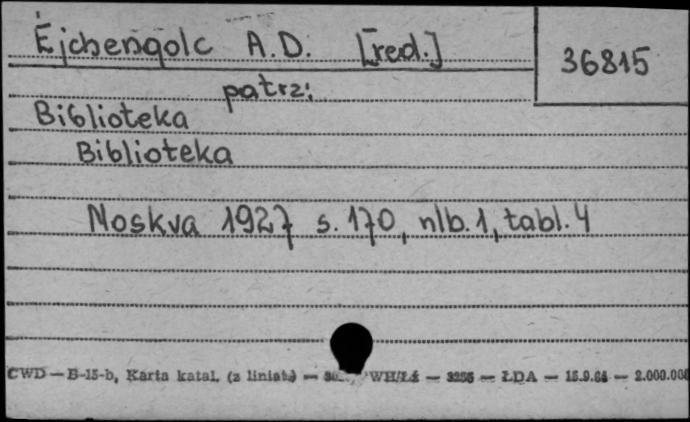 Ėjchengolc A.D. [red.]
36815
patrz:
Biblioteka
Biblioteka
Moskva 1927 s. 170, nlb. 1, tabl. 4
CWD — B-15-b, Karta katal. (z liniatą) — WH/Łź — 3255 — ŁDA — 15.9.64 — 2.000.000